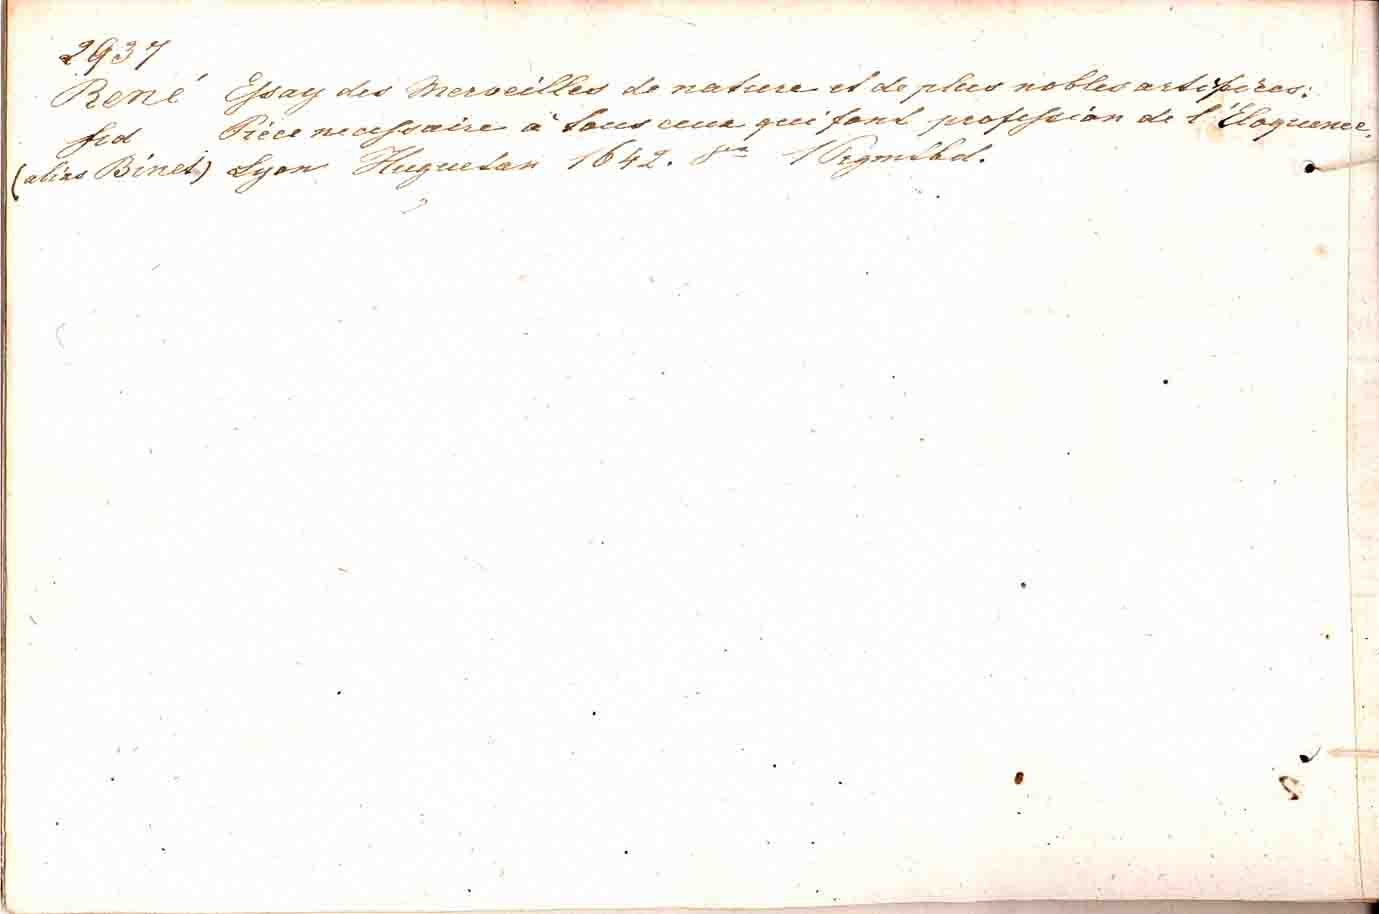 2937
René Essay des Merveilles de nature et de plus nobles artifices:
frd Pièce necessaire à tous ceux qui font profession de l'Éloquence.
(alias Binet) Lyon Huguetan 1642. 8vo 1 Prgmtbd.